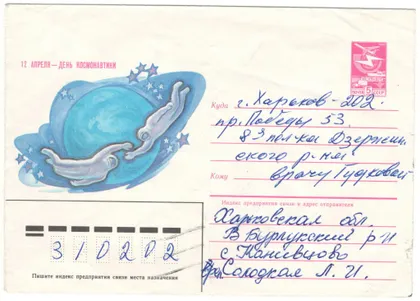 12 АПРЕЛЯ — ДЕНЬ КОСМОНАВТИКИ
Куда г. Харьков-202
пр. Победы 53
Дзержин
ского р-на
Кому врачу Гудковой
Индекс предприятия связи и адрес отправителя
Харьковская обл.
В Бурлукский р-н
с.
Солодкая Л. И.
310202
Пишите индекс предприятия связи места назначения